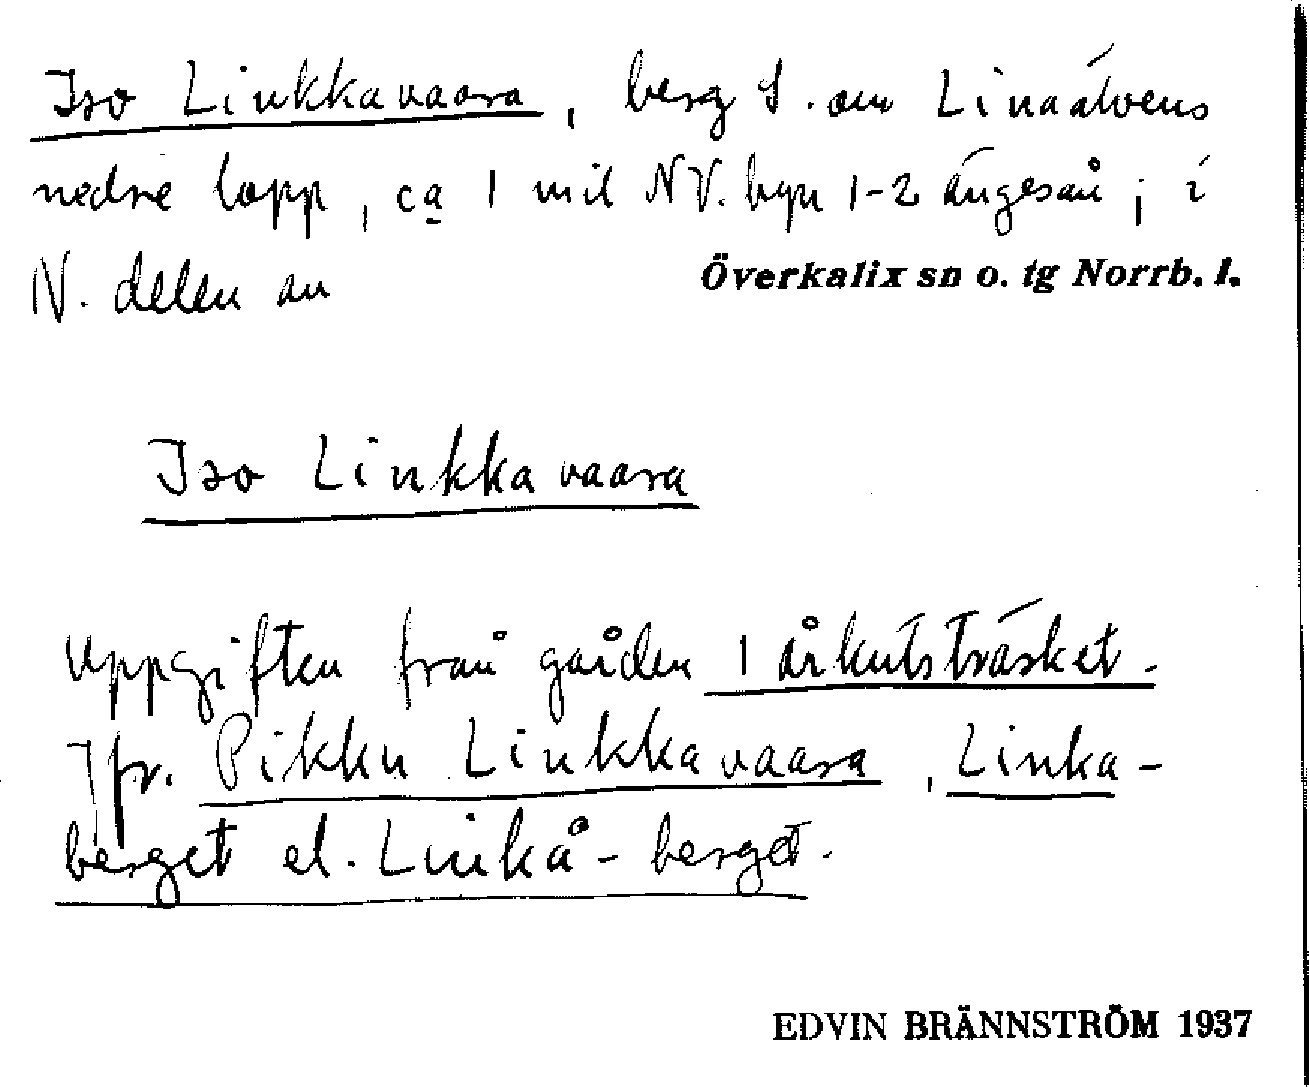 Iso Linkkavaara, berg S. om Linaälvens
nedre lopp, ca 1 mil NV. byn 1-2 Ängeså; i
N. delen av Överkalix sn o. tg Norrb. l.
Iso Linkkavaara
Uppgiften från gården 1 Årkutsträsket.
Jfr. Pikku Linkkavaara, Linka-
berget el. Linkå-berget.
EDVIN BRÄNNSTRÖM 1937